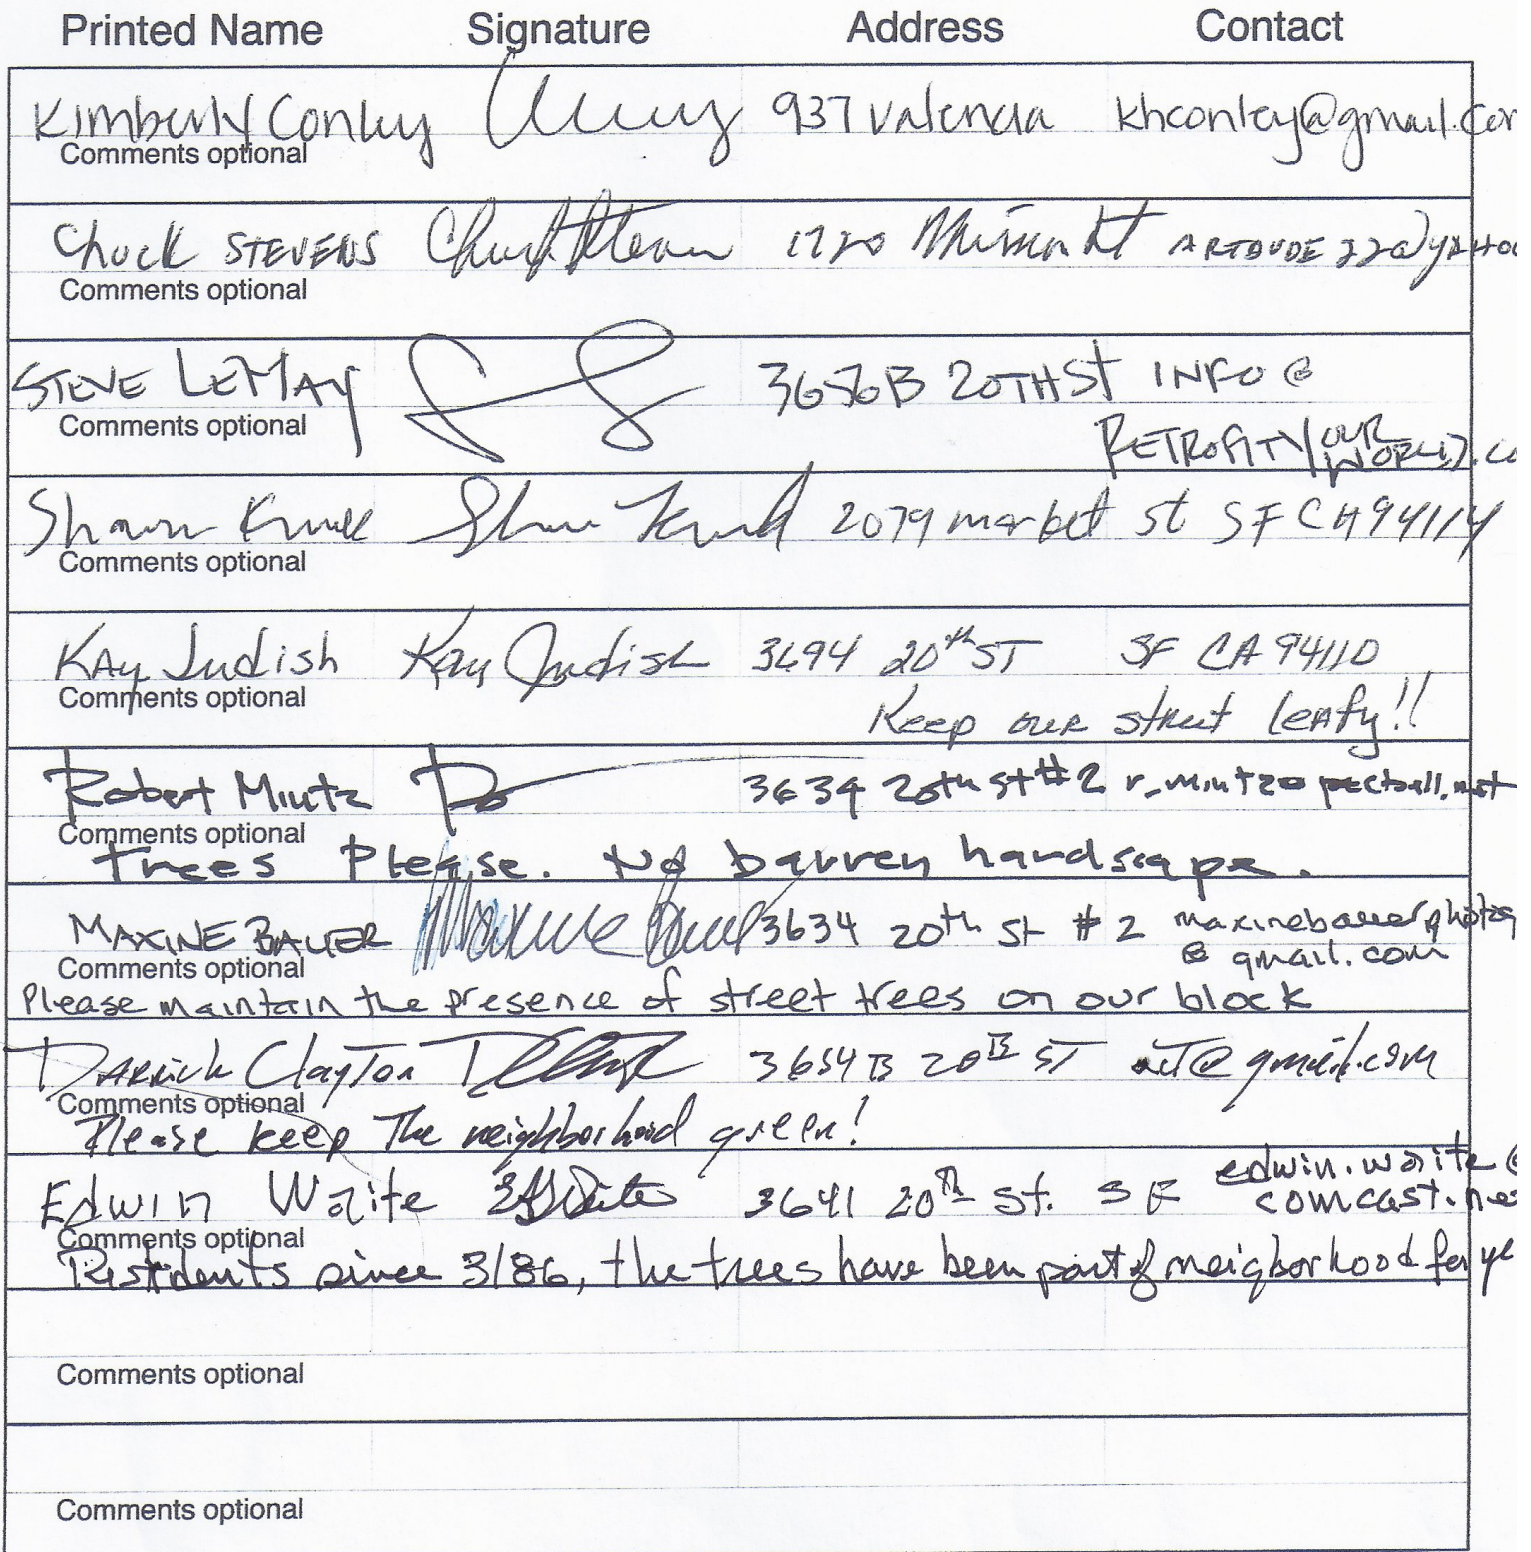 Printed Name Signature Address Contact
Kimberly Conley 937 Valencia khconley@gmail.com
Comments optional
Chuck STEVENS Chuck Stevens 1720 Mission St ARTDUDE22@YAHOO
Comments optional
STEVE LEMAY 3656B 20TH St INFO@
Comments optional
RETROFITYOURWORLD.CO
Shawn 2079 market st SF CA 94114
Comments optional
KAy Judish Kay Judish 3694 20th ST SF CA 94110
Comments optional
Keep our street leafy!!
Robert Mintz 3634 20th st #2
Comments optional
Trees Please. No barren hardscape.
MAXINE BAUER Maxine Bauer 3634 20th St #2 maxinebauerphotog
@gmail.com
Comments optional
Please maintain the presence of street trees on our block
DARRICK Clayton 3654B 20th ST @gmail.com
Comments optional
Please keep The neighborhood green!
Edwin Waite 3641 20th St. SF edwin.waite@
comcast.ne
Comments optional
Residents since 3/86, the trees have been part of neigborhood for ye
Comments optional
Comments optional